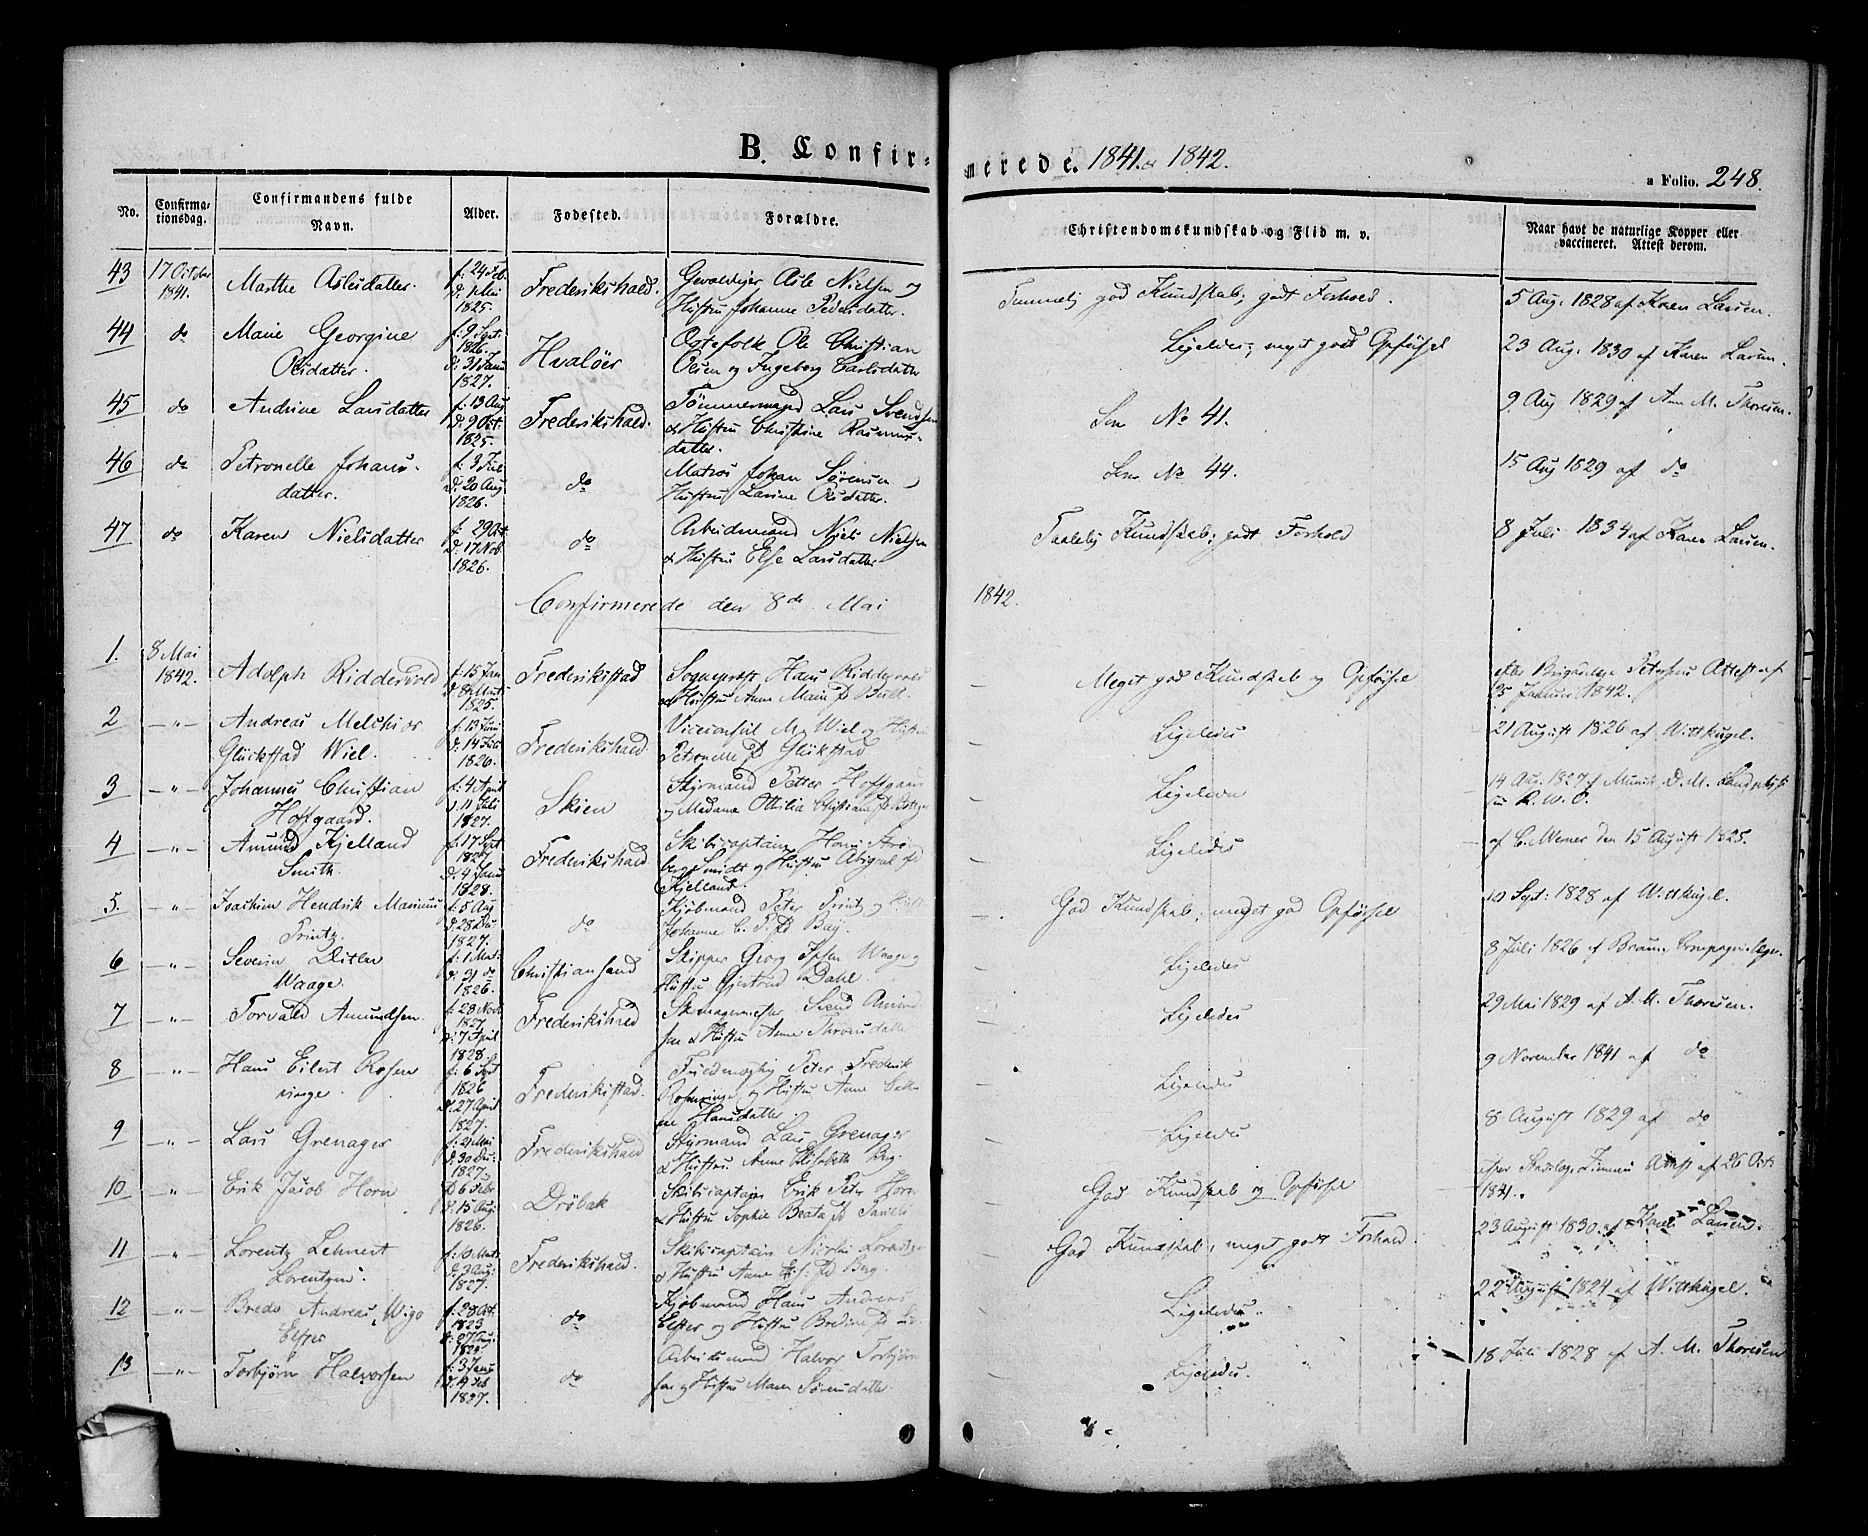 B. Confir=
merede. 1841. & 1842.
a Folio. 248.
No.
Confirma-
tionsdag.
Confirmandens fulde
Navn.
Alder.
Fødested.
Forældre.
Christendomskundskab og Flid m. v.
Naar havt de naturlige Kopper eller
vaccineret. Attest derom.
43 17 October 1841. Marthe Aslesdatter. f. 24 Feb. d. 1 Mai 1825. Frederikshald.
Gevaldiger Asle Nielsen og
Hustru Johanne Pedersdatter.
Temmelig god Kundskab; godt Forhold.
5 Aug. 1828 af Karen Larsen.
44 do Marie Georgine
Olsdatter.
f. 9 Sept. 1826. d. 31 Janu 1827.
Hvaløer
Ole Christian
Olsen og Ingeborg Carlsdatter
Ligeledes; meget god Opførsel
23 Aug. 1830 af Karen Larsen.
45 do Andrine Larsdatter f. 13 Aug d. 9 Oct. 1825. Frederikshald.
Tømmermand Lars Svendsen
& Hustru Christine Rasmus-
datter.
Som No 41.
9 Aug 1829 af Ane M. Thoresen.
46 do Petronelle Johans-
datter.
f. 3 Jul d. 20 Aug 1826.
do
Matros Johan Sørensen
Hustru Larine Olsdatter.
Som No 44.
15 Aug 1829 af do
47 do Karen Nielsdatter f. 29 Oct d. 17 Nov 1826. do
Arbeidsmand Niels Nielsen
& Hustru Else Larsdatter
Taalelig Kundskab; godt Forhold
8 Juli 1834 af Karen Larsen.
Confirmerede den 8de Mai 1842.
1. 8 Mai 1842. Adolph Ridderud f. 15 Jan d. 8 1825. Frederikstad
Sogneprest Hans Ridderud
& Hustru Anne Marie
Meget god Kundskab og Opførsel
Attest af
Januar 1842.
2 —"— Andreas Melchior
Glückstad Wiel.
f. 13 Juni d. 14 Juli 1826.
Frederikshald.
Viceconsul M. Wiel og Hustru
Petronelle fd Glükstad
Ligeledes
21 August 1826 af Wittkugel.
3 —"— Johannes Christian
Hoffgaard.
f. 4 April d. 11 Juli 1827.
Skien
Styrmand Petter Hoffgaard
og Madame Ottilia
Ligeledes
14 Au. 1827 af Munch
4 —"— Amund Kjelland
Smith.
f. 17 Sept 1827 d. 4 1828.
Frederikshald
Skibscaptain Hans
Smidt og Hustru Abigael fd
Kjelland.
Ligeledes
af C. Werner den 15 August 1825.
5. —"— Joachim Hendrik Marinus
Printz.
f. 5 Aug d. 28 Dec. 1827.
do
Kjøbmand Peter Printz og
Johanne C.
God Kundskab; meget god Opførsel
10 Sept: 1828 af Wittkugel.
6 —"— Severin Ditlev
Waage.
f. 1 Mai. d. 31 do 1826.
Christiansand
Skipper Georg Ipsen Waage og
Hustru Gjertrud Dahl
Ligeledes
8 Juli 1826 af
7 —"— Torvald Amundsen. f. 28 Nov. 1827 d. 7 April 1828. Frederikshald
Skomagermester Svend
sen & Hustru Anne
Ligeledes
29 Mai 1829 af A. M. Thoresen.
8 —"— Hans Eilert Rosen
vinge.
f. 6 Sept 1826 d. 27 April 1827.
Frederikstad.
Peter Frederik
Rosenvinge og Hustru Anne
Hansdatter.
Ligeledes
9 November 1841 af do
9 —"— Lars Grenager f. 21 Mai d. 30 Dec. 1827. Frederikshald
Styrmand Lars Grenager
& Hustru Anne Elisabeth Berg.
Ligeledes
8 August 1829 af do
10 —"— Erik Jacob Horn f. 6 Febr d. 15 Aug: 1826. Drøbak
Skibscaptain Erik Peter Horn
& Hustru Sophie Beata
God Kundskab og Opførsel
Attest af 26 Oct 1841.
11 —"— Lorentz Lehnert
Lorentzen.
f. 10 d. 3 Aug: 1827.
Frederikshald.
Skibscaptain
& Hustru Anne fd Berg
God Kundskab, meget godt Forhold
23 August 1830. af Karen Larsen.
12 —"— Bredo Andreas Wigo
f. 28 Oct. 1823 d. 27 Au.
do
Kjøbmand Hans Andreas
og Hustru Bredine fd
Ligeledes.
22 August 1824 af Wittkugel.
13 —"— Torbjørn Halvorsen f. 3 Janu d. 1827. do
Arbeidsmand Halvor Torbjørn
sen og Hustru Maren Sørensdatter.
Ligeledes.
18 Juli 1828 af A. M. Thoresen